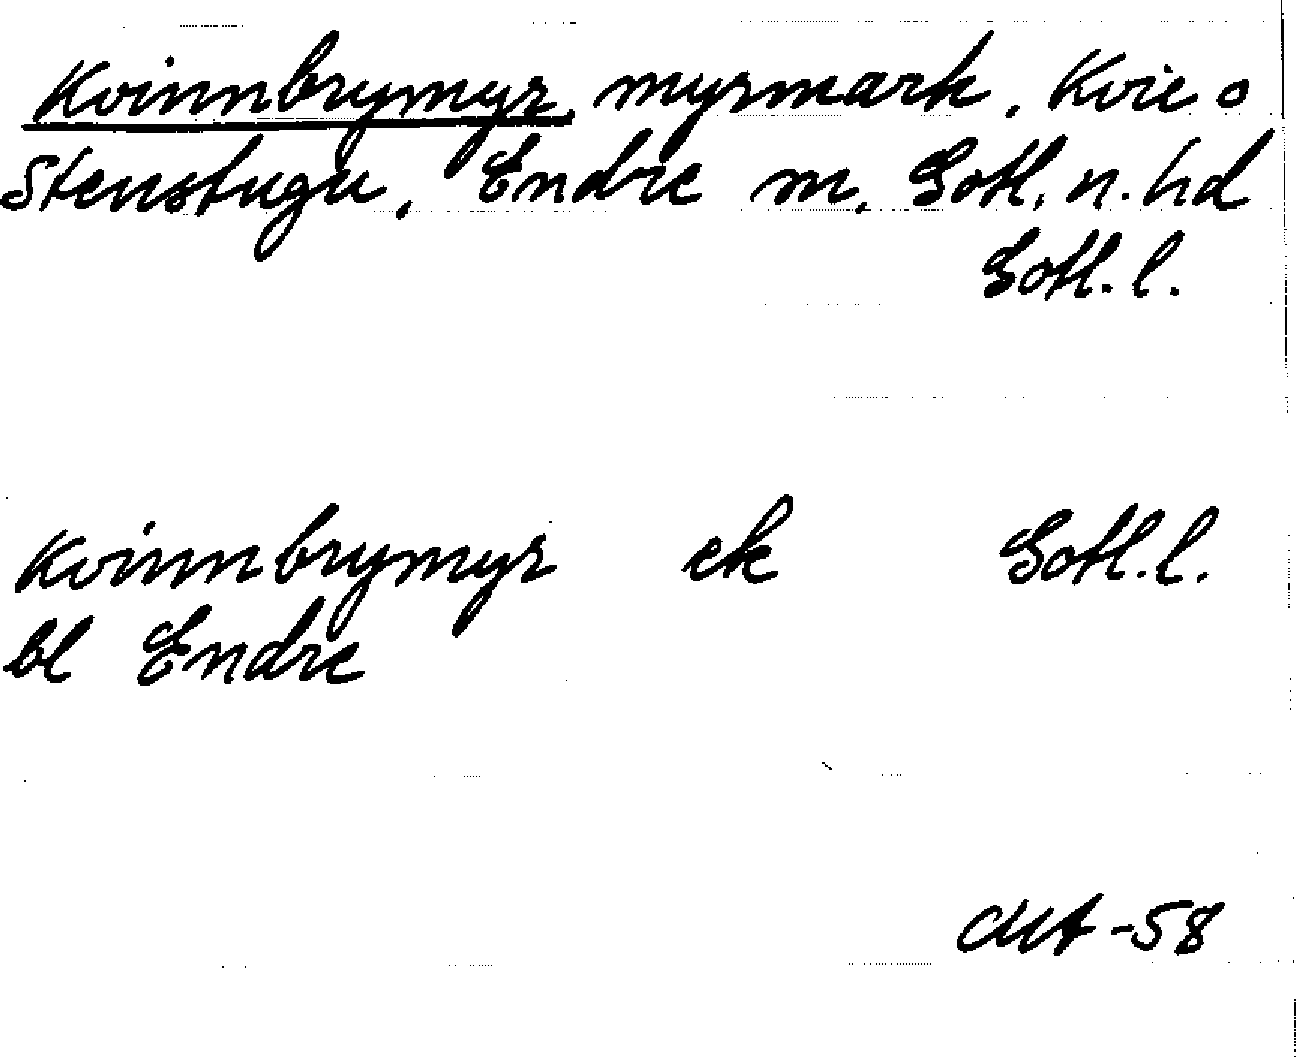 Kvinnbrymyr, myrmark, Kvie o
Stenstugu, Endre m, Gotl. n. hd
Gotl. l.
Kvinnbrymyr ek Gotl. l.
bl Endre
-58